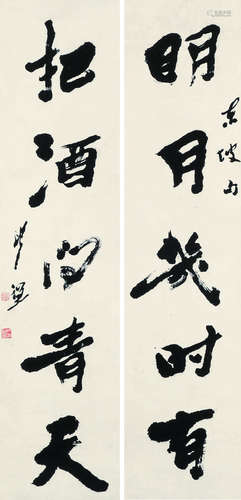 明月几时有
东坡句
把酒问青天